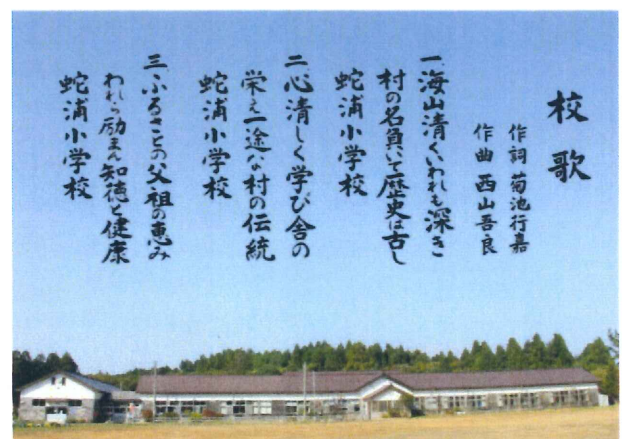 校歌
作詞 菊池行嘉
作曲 西山吾良
一、海山清くいわれも深き
村の名負いて歴史は古し
蛇浦小学校
二、心清しく学び舎の
栄え一途な村の伝統
蛇浦小学校
三、ふるさとの父祖の恵み
われら励まん知徳と健康
蛇浦小学校